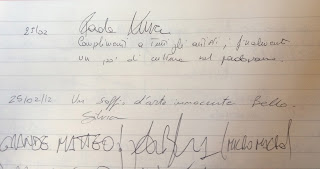 25/02
Complimenti a tutti gli artisti, finalmente
un po' di cultura nel padovano.
25/02/12 Un soffio d'arte innocente Bello.
Silvia
GRANDE MATTEO! (MICROMACRO)